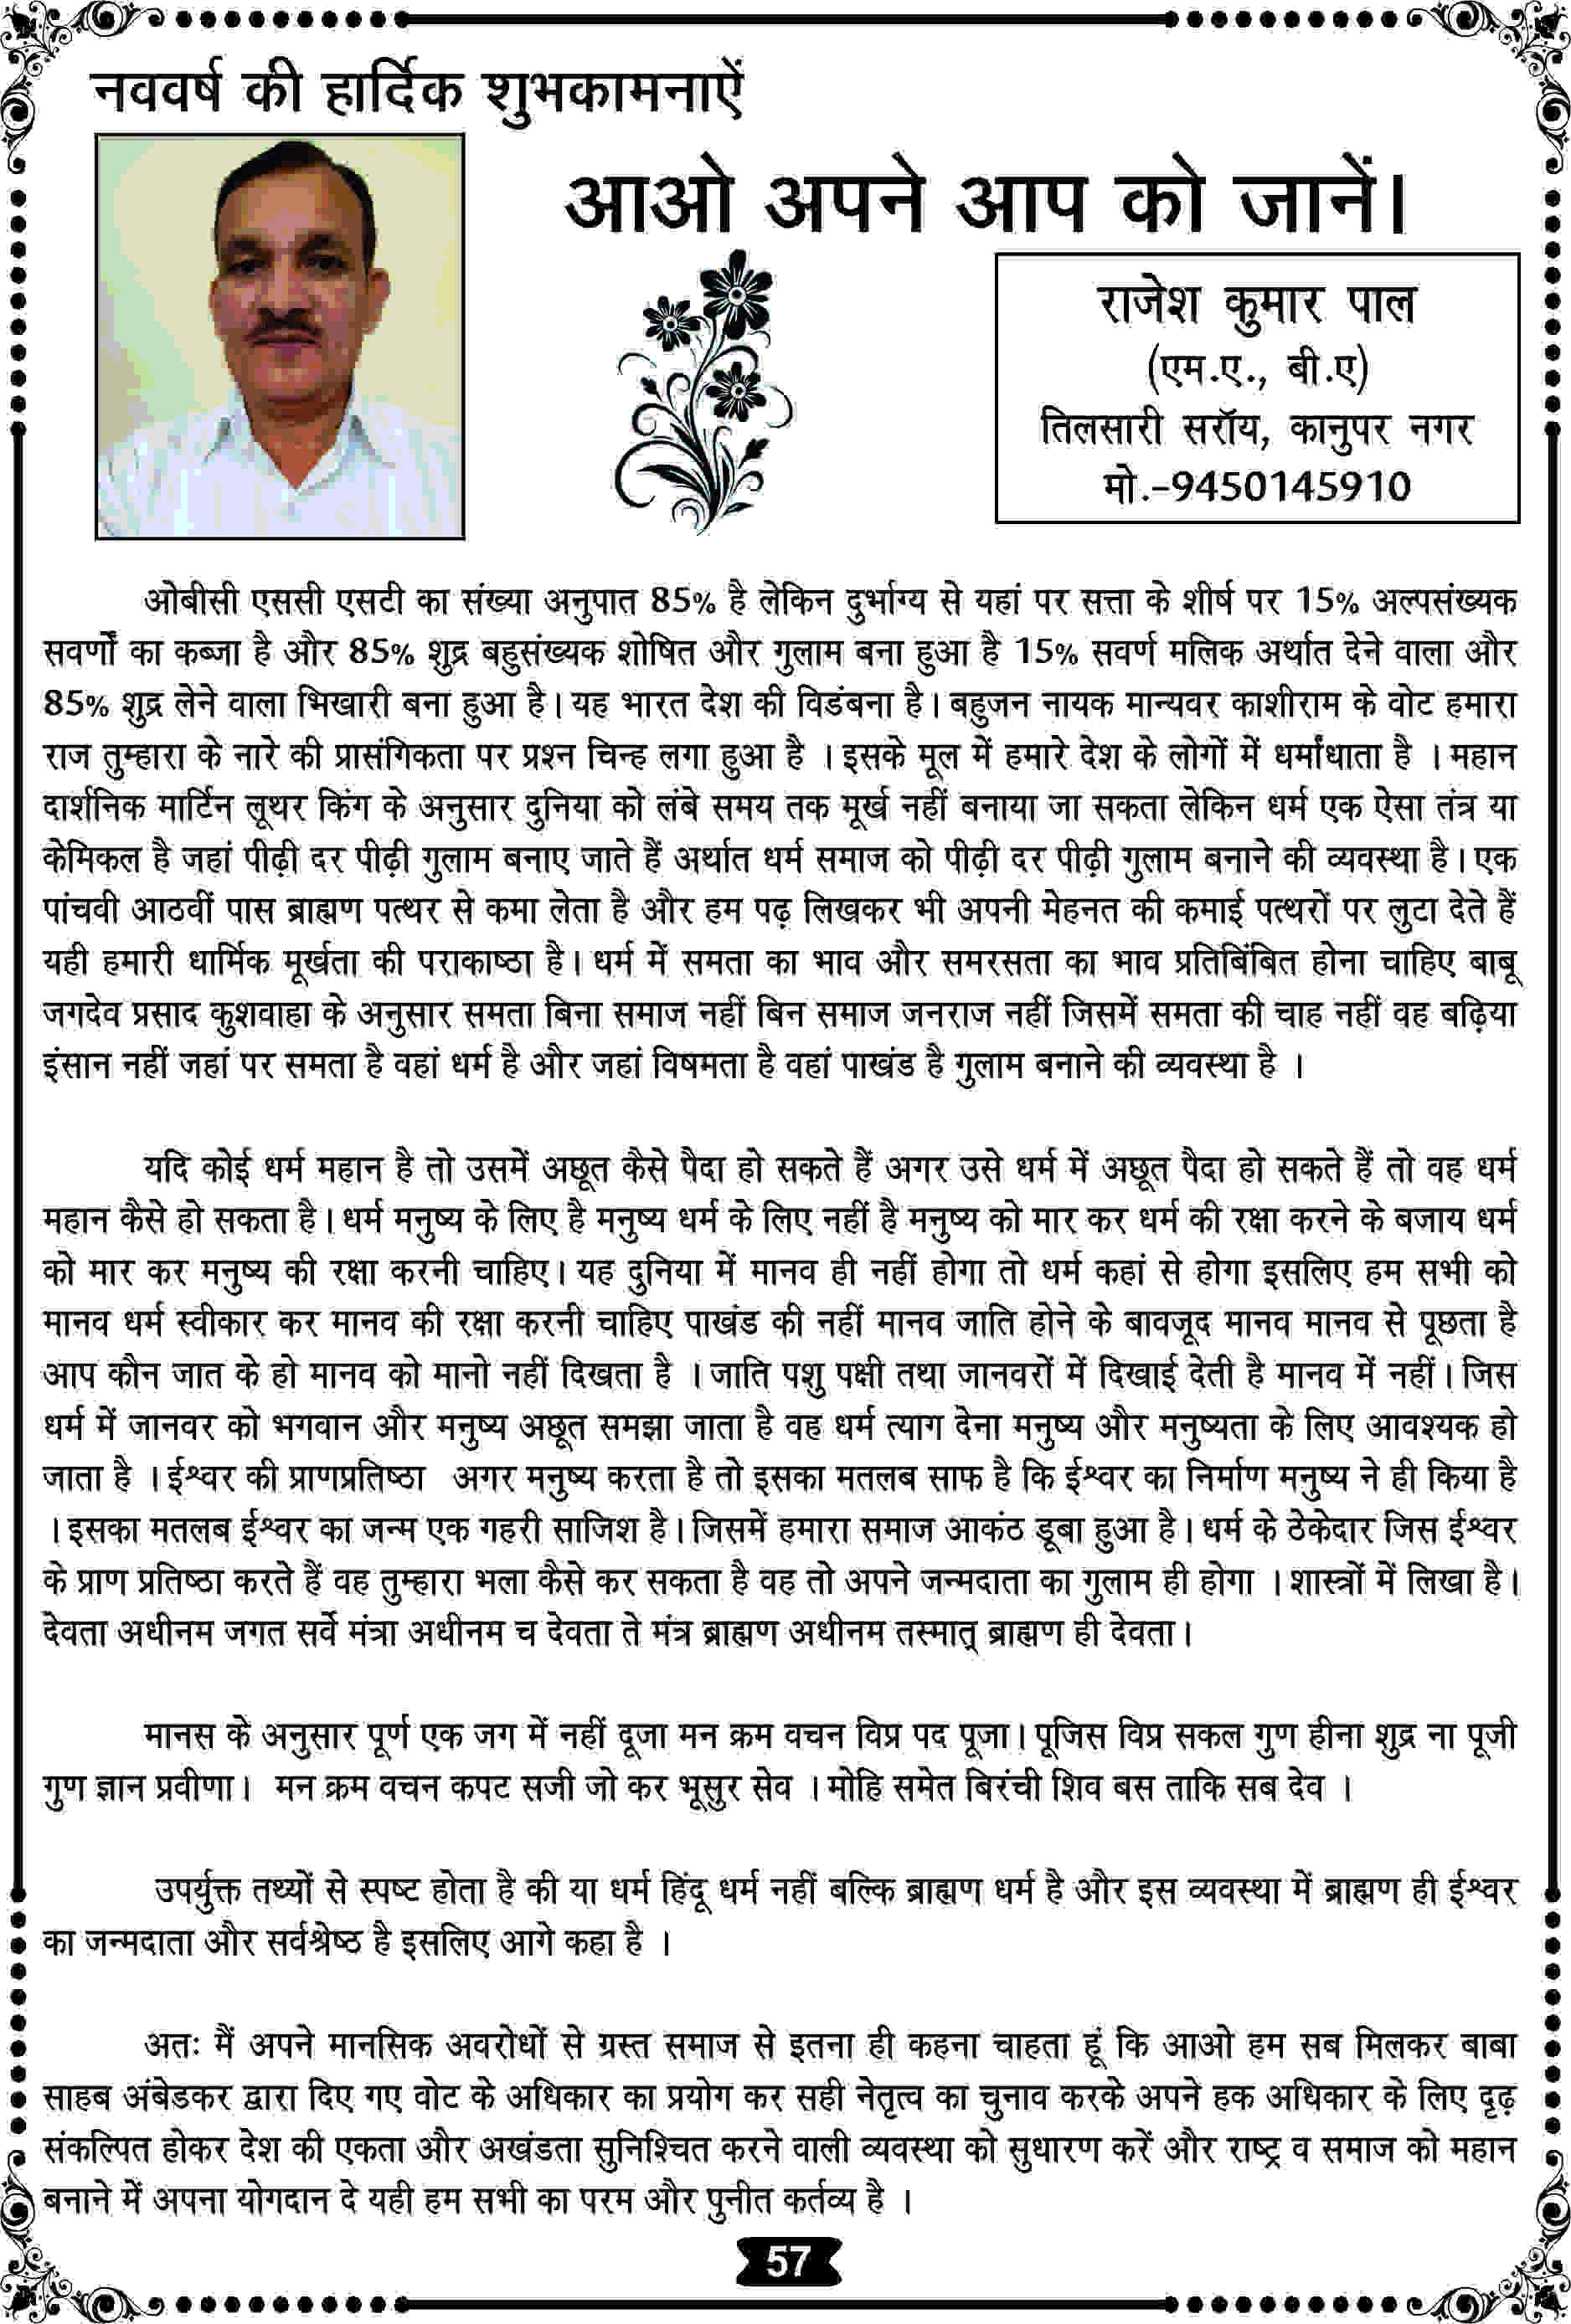 नववर्ष की हार्दिक शुभकामनाऐं
आओ अपने आप को जानें।
राजेश कुमार पाल
(एम.ए., बी.ए)
तिलसारी सरॉय, कानुपर नगर
मो.-9450145910
ओबीसी एससी एसटी का संख्या अनुपात 85% है लेकिन दुर्भाग्य से यहां पर सत्ता के शीर्ष पर 15% अल्पसंख्यक
सवर्णों का कब्जा है और 85% शुद्र बहुसंख्यक शोषित और गुलाम बना हुआ है 15% सवर्ण मलिक अर्थात देने वाला और
85% शुद्र लेने वाला भिखारी बना हुआ है। यह भारत देश की विडंबना है। बहुजन नायक मान्यवर काशीराम के वोट हमारा
राज तुम्हारा के नारे की प्रासंगिकता पर प्रश्न चिन्ह लगा हुआ है । इसके मूल में हमारे देश के लोगों में धर्मांधाता है । महान
दार्शनिक मार्टिन लूथर किंग के अनुसार दुनिया को लंबे समय तक मूर्ख नहीं बनाया जा सकता लेकिन धर्म एक ऐसा तंत्र या
केमिकल है जहां पीढ़ी दर पीढ़ी गुलाम बनाए जाते हैं अर्थात धर्म समाज को पीढ़ी दर पीढ़ी गुलाम बनाने की व्यवस्था है। एक
पांचवी आठवीं पास ब्राह्मण पत्थर से कमा लेता है और हम पढ़ लिखकर भी अपनी मेहनत की कमाई पत्थरों पर लुटा देते हैं
यही हमारी धार्मिक मूर्खता की पराकाष्ठा है। धर्म में समता का भाव और समरसता का भाव प्रतिबिंबित होना चाहिए बाबू
जगदेव प्रसाद कुशवाहा के अनुसार समता बिना समाज नहीं बिन समाज जनराज नहीं जिसमें समता की चाह नहीं वह बढ़िया
इंसान नहीं जहां पर समता है वहां धर्म है और जहां विषमता है वहां पाखंड है गुलाम बनाने की व्यवस्था है ।
यदि कोई धर्म महान है तो उसमें अछूत कैसे पैदा हो सकते हैं अगर उसे धर्म में अछूत पैदा हो सकते हैं तो वह धर्म
महान कैसे हो सकता है। धर्म मनुष्य के लिए है मनुष्य धर्म के लिए नहीं है मनुष्य को मार कर धर्म की रक्षा करने के बजाय धर्म
को मार कर मनुष्य की रक्षा करनी चाहिए। यह दुनिया में मानव ही नहीं होगा तो धर्म कहां से होगा इसलिए हम सभी को
मानव धर्म स्वीकार कर मानव की रक्षा करनी चाहिए पाखंड की नहीं मानव जाति होने के बावजूद मानव मानव से पूछता है
आप कौन जात के हो मानव को मानो नहीं दिखता है । जाति पशु पक्षी तथा जानवरों में दिखाई देती है मानव में नहीं। जिस
धर्म में जानवर को भगवान और मनुष्य अछूत समझा जाता है वह धर्म त्याग देना मनुष्य और मनुष्यता के लिए आवश्यक हो
जाता है । ईश्वर की प्राणप्रतिष्ठा अगर मनुष्य करता है तो इसका मतलब साफ है कि ईश्वर का निर्माण मनुष्य ने ही किया है
। इसका मतलब ईश्वर का जन्म एक गहरी साजिश है। जिसमें हमारा समाज आकंठ डूबा हुआ है। धर्म के ठेकेदार जिस ईश्वर
के प्राण प्रतिष्ठा करते हैं वह तुम्हारा भला कैसे कर सकता है वह तो अपने जन्मदाता का गुलाम ही होगा । शास्त्रों में लिखा है।
देवता अधीनम जगत सर्वे मंत्रा अधीनम च देवता ते मंत्र ब्राह्मण अधीनम तस्मात् ब्राह्मण ही देवता।
मानस के अनुसार पूर्ण एक जग में नहीं दूजा मन क्रम वचन विप्र पद पूजा। पूजिस विप्र सकल गुण हीना शुद्र ना पूजी
गुण ज्ञान प्रवीणा। मन क्रम वचन कपट सजी जो कर भूसुर सेव । मोहि समेत बिरंची शिव बस ताकि सब देव ।
उपर्युक्त तथ्यों से स्पष्ट होता है की या धर्म हिंदू धर्म नहीं बल्कि ब्राह्मण धर्म है और इस व्यवस्था में ब्राह्मण ही ईश्वर
का जन्मदाता और सर्वश्रेष्ठ है इसलिए आगे कहा है ।
अतः मैं अपने मानसिक अवरोधों से ग्रस्त समाज से इतना ही कहना चाहता हूं कि आओ हम सब मिलकर बाबा
साहब अंबेडकर द्वारा दिए गए वोट के अधिकार का प्रयोग कर सही नेतृत्व का चुनाव करके अपने हक अधिकार के लिए दृढ़
संकल्पित होकर देश की एकता और अखंडता सुनिश्चित करने वाली व्यवस्था को सुधारण करें और राष्ट्र व समाज को महान
बनाने में अपना योगदान दे यही हम सभी का परम और पुनीत कर्तव्य है ।
57